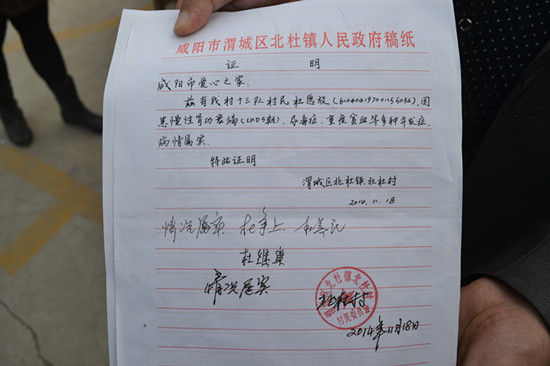 咸阳市渭城区北杜镇人民政府稿纸
证 明
咸阳市爱心之家
兹有我村十三队村民杜愿放(),因
患慢性肾功衰竭(CKD5期)、尿毒症、重度贫血等多种并发症,
病情属实
特此证明
渭城区北杜镇北杜村
2014.11.18
情况属实
杜继康
情况属实
北杜村
2014年11月18日